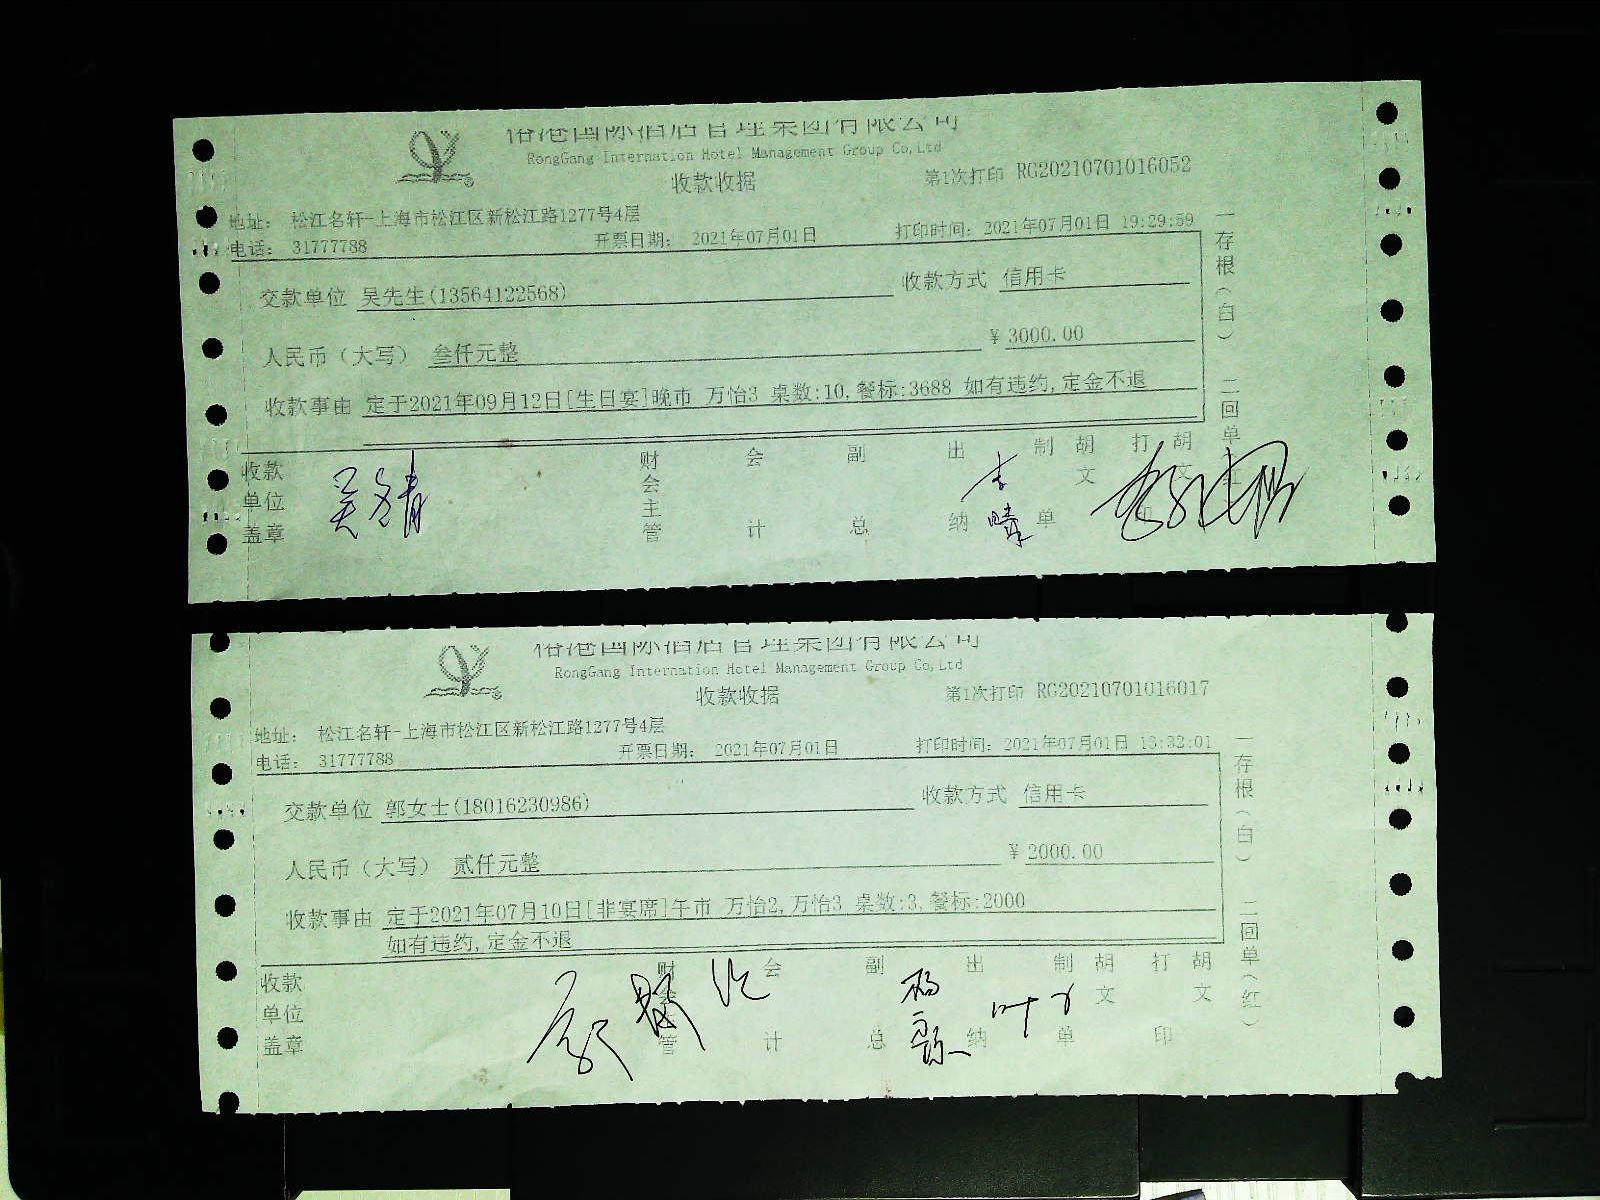 国际酒店管理集团有限公司
RongGang Internation Hotel Management Group Co,Ltd
收款收据
第1次打印 RG20210701016052
地址: 松江名轩-上海市松江区新松江路1277号4层
电话: 31777788
开票日期: 2021年07月01日
打印时间: 2021年07月01日 19:29:59
交款单位 吴先生(13564122568)
收款方式 信用卡
人民币（大写） 叁仟元整
¥ 3000.00
收款事由 定于2021年09月12日[生日宴]晚市 万怡3 桌数:10,餐标:3688 如有违约,定金不退
一存根（白） 二回单
收款单位盖章
财会主管
会计
副总
出纳
制单
胡文
打印
胡文
国际酒店管理集团有限公司
RongGang Internation Hotel Management Group Co,Ltd
收款收据
第1次打印 RG20210701016017
地址: 松江名轩-上海市松江区新松江路1277号4层
电话: 31777788
开票日期: 2021年07月01日
打印时间: 2021年07月01日 13:32:01
交款单位 郭女士(18016230986)
收款方式 信用卡
人民币（大写） 贰仟元整
¥ 2000.00
收款事由 定于2021年07月10日[非宴席]午市 万怡2,万怡3 桌数:3,餐标:2000
如有违约,定金不退
一存根（白） 二回单（红）
收款单位盖章
财会主管
会计
副总
出纳
制单
胡文
打印
胡文